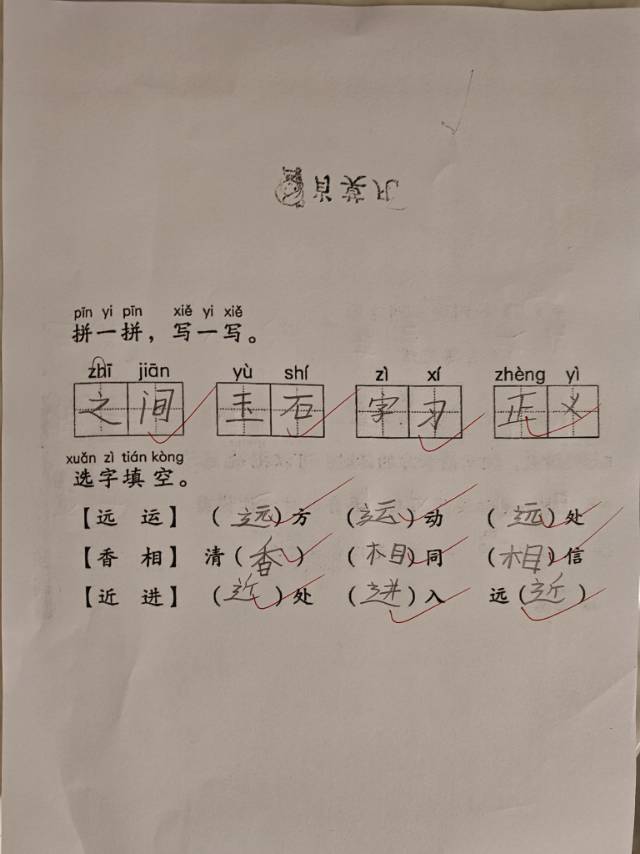 pīn yi pīn xiě yi xiě
拼一拼，写一写。
zhī jiān yù shí zì xí zhèng yì
之间 玉石 字习 正义
xuǎn zì tián kòng
选字填空。
【远 运】 （远）方 （运）动 （远）处
【香 相】 清（香） （相）同 （相）信
【近 进】 （近）处 （进）入 远（近）